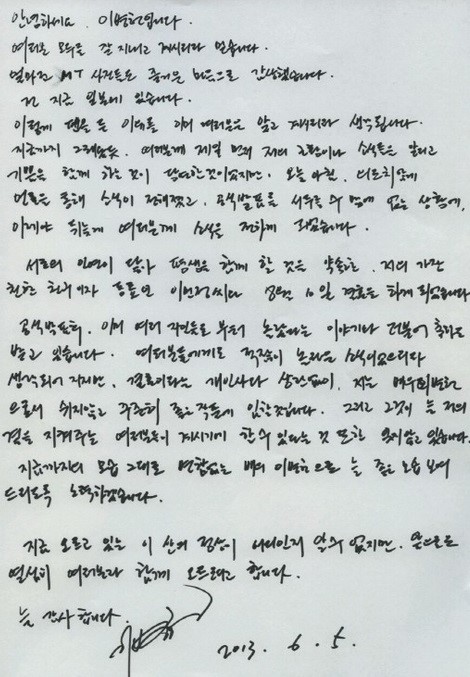 안녕하세요. 이병헌입니다.
여러분 모두들 잘 지내고 계시리라 믿습니다.
얼마전 MT 사진들도 즐거운 마음으로 감상했습니다.
전 지금 일본에 있습니다.
이렇게 펜을 든 이유를 이미 여러분은 알고 계시리라 생각됩니다.
지금까지 그래왔듯, 여러분께 제일 먼저 저의 고민이나 소식들을 알리고
기쁨을 함께 하는 것이 당연한것이었지만, 오늘 아침, 의도치않게
언론을 통해 소식이 전해졌고, 공식발표를 서두를 수 밖에 없는 상황에,
이제야 뒤늦게 여러분께 소식을 전하게 되었습니다.
서로의 인연이 닿아 평생을 함께 할 것을 약속한, 저의 가장
친한 친구이자 동료인 이민정씨와 8월 10일 결혼을 하게 되었습니다
공식발표후, 이미 여러 지인들로 부터 놀랐다는 이야기와 더불어 축하도
받고 있습니다. 여러분들에게도 적잖이 놀라운 소식이었으리라
생각되어 지지만, 결혼이라는 개인사와 상관없이, 저는 배우 이병헌
으로서 쉬지않고 꾸준히 좋은 작품에 임할것입니다. 그리고 그것이 늘 저의
곁을 지켜주는 여러분들이 계시기에 할 수 있다는 것 또한 잊지않고 있습니다.
지금까지의 모습 그대로 변함없는 배우 이병헌으로 늘 좋은 모습 보여
드리도록 노력하겠습니다.
지금 오르고 있는 이 산의 정상이 어디인지 알 수 없지만, 앞으로도
열심히 여러분과 함께 오르려고 합니다.
늘 감사합니다.
2013. 6. 5.